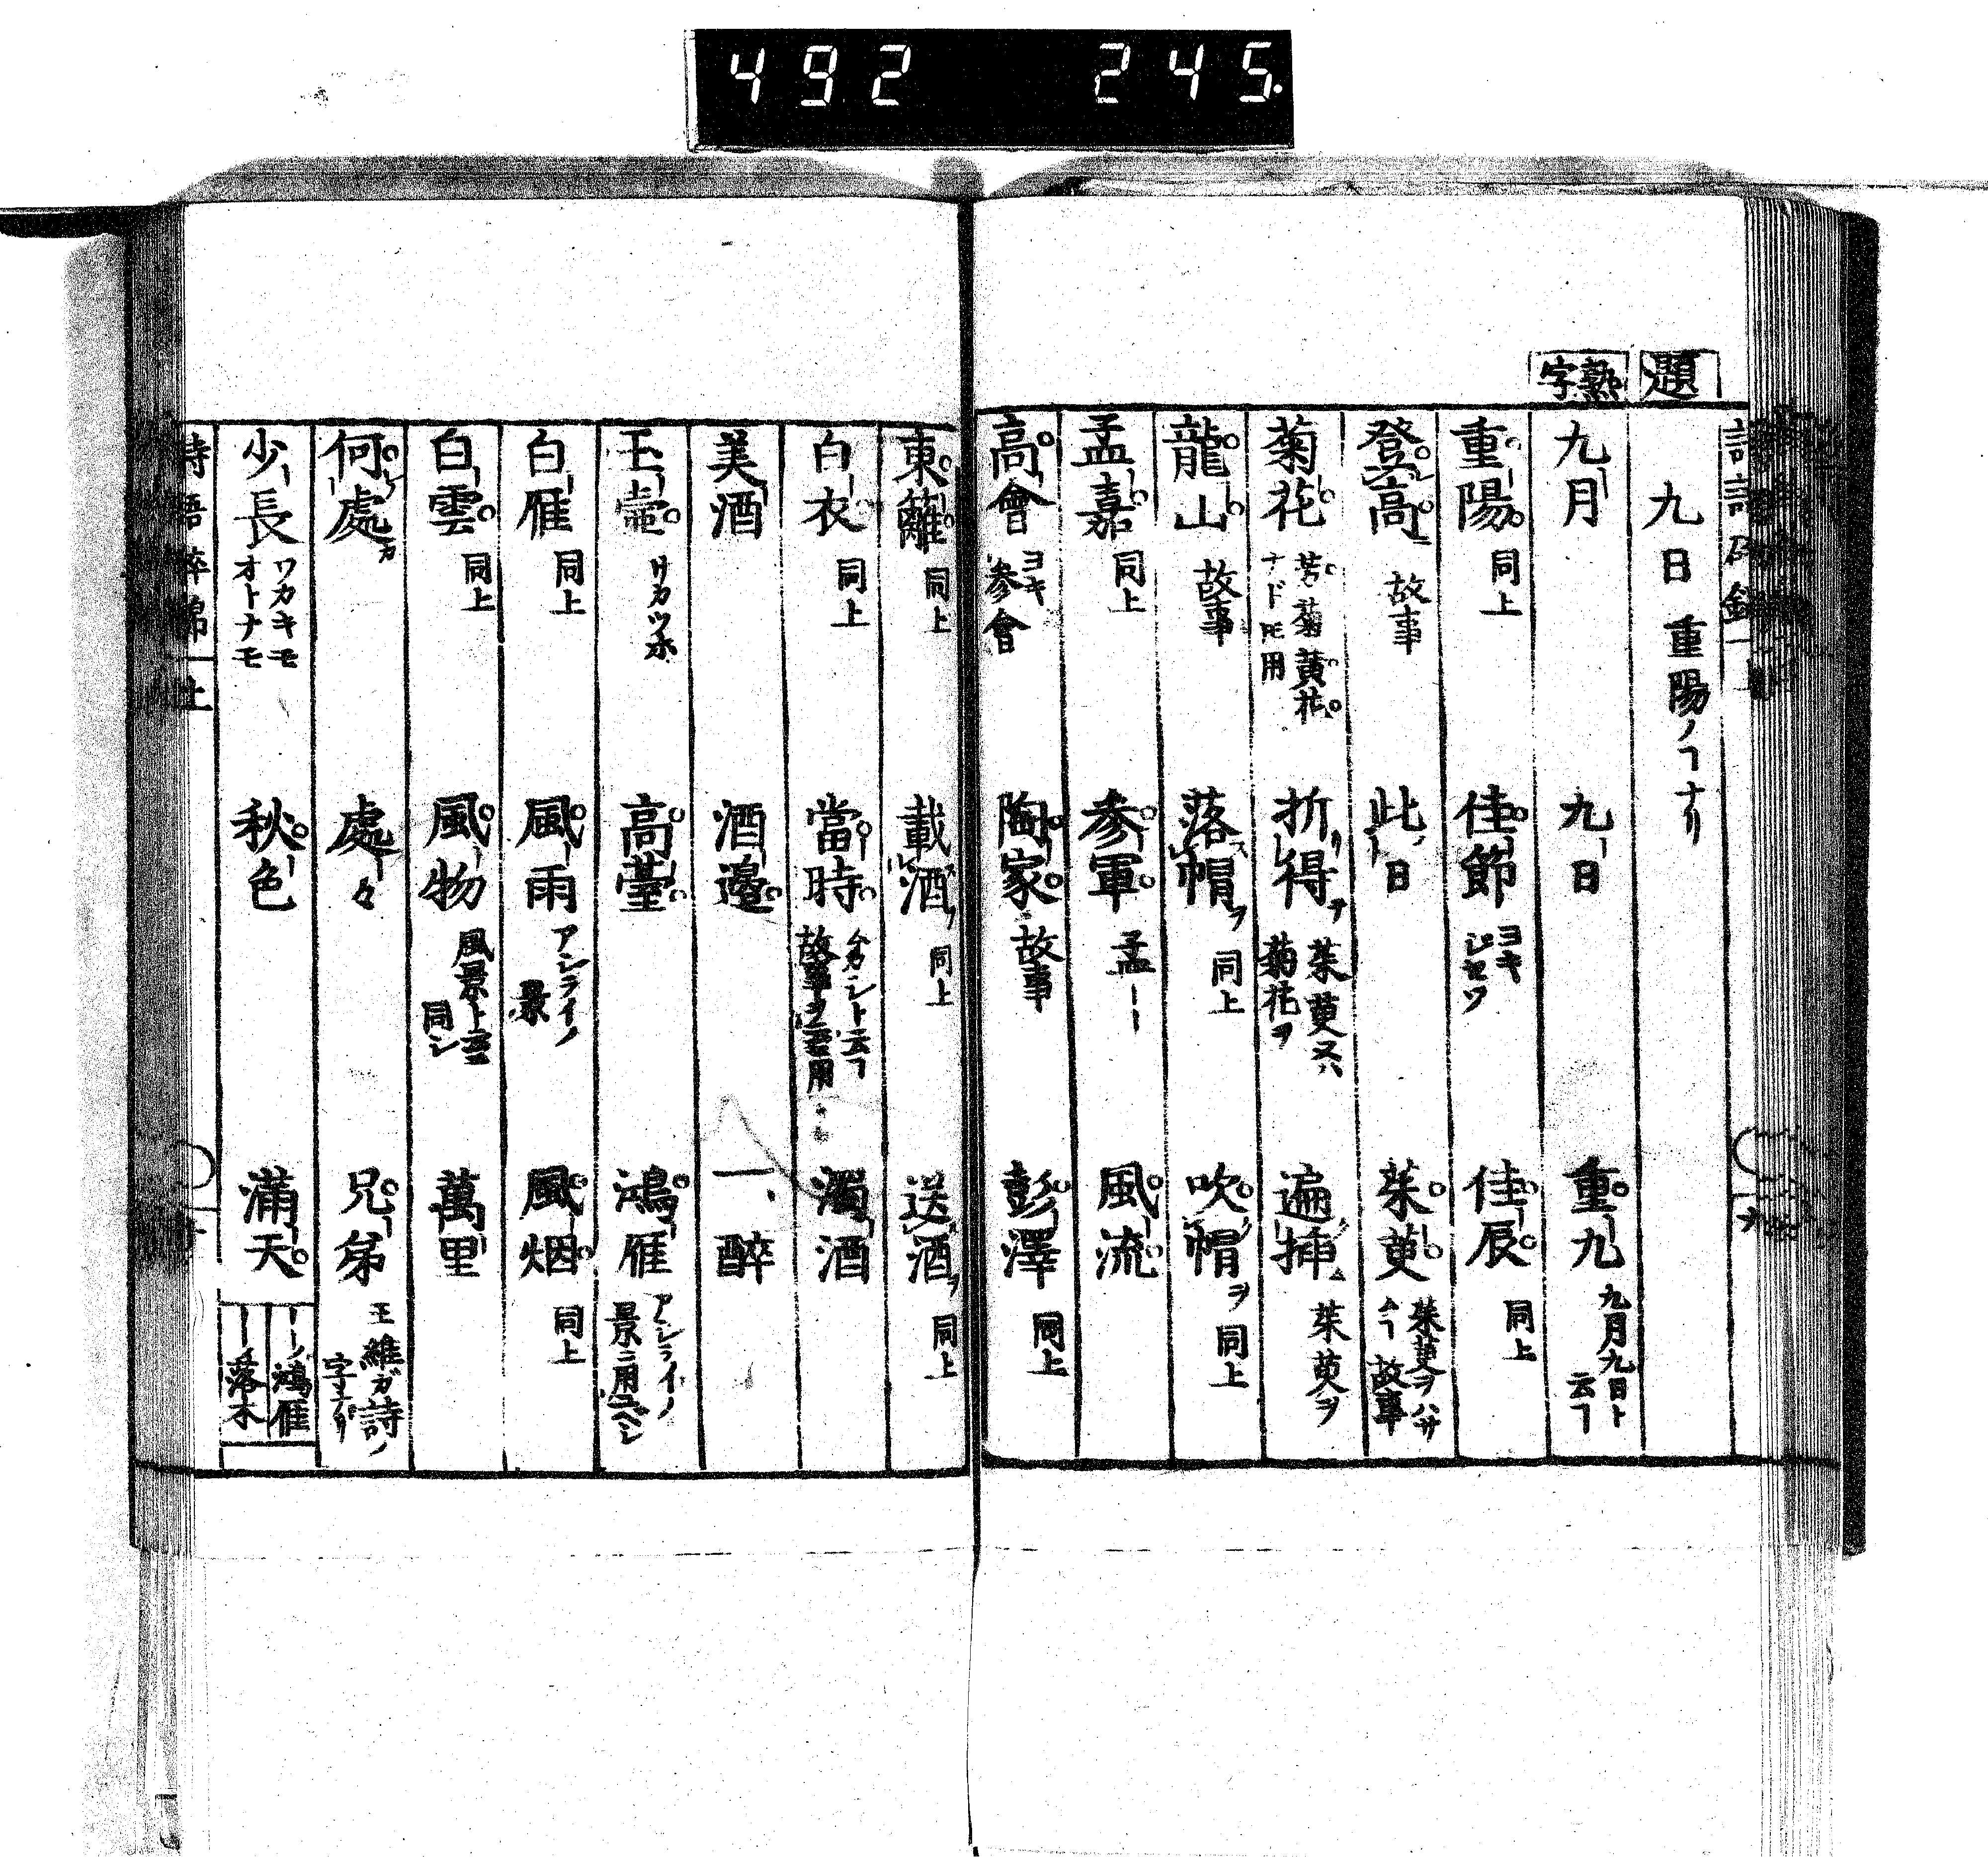 492 245.
題
熟字
九日 重陽ノヿナリ
九月 九日 重九 九月九日ト云フ
重陽 同上 佳節 ヨキジセツ 佳辰 同上
登高 故事 此日 茱萸 茱萸ヲハサムヿ故事
菊花 芳菊黄花ナドモ用 折得 茱萸又ハ菊花ヲ 遍挿 茱萸ヲ
龍山 故事 落帽ヲ 同上 吹帽ヲ 同上
孟嘉 同上 参軍 孟―― 風流
高會 ヨキ参會 陶家 故事 彭澤 同上
東籬 同上 載酒 同上 送酒ヲ 同上
白衣 同上 當時 濁酒
美酒 酒邉 一醉
玉壷 高臺 鴻雁 アシライノ景ニ用ユベシ
白雁 同上 風雨 アシライノ景 風烟 同上
白雲 同上 風物 風景ト云ニ同シ 萬里
何處カ 處々 兄弟 王維ガ詩ノ字ナリ
少長 ワカキモオトナモ 秋色 満天 ――ノ鴻雁 ――落木